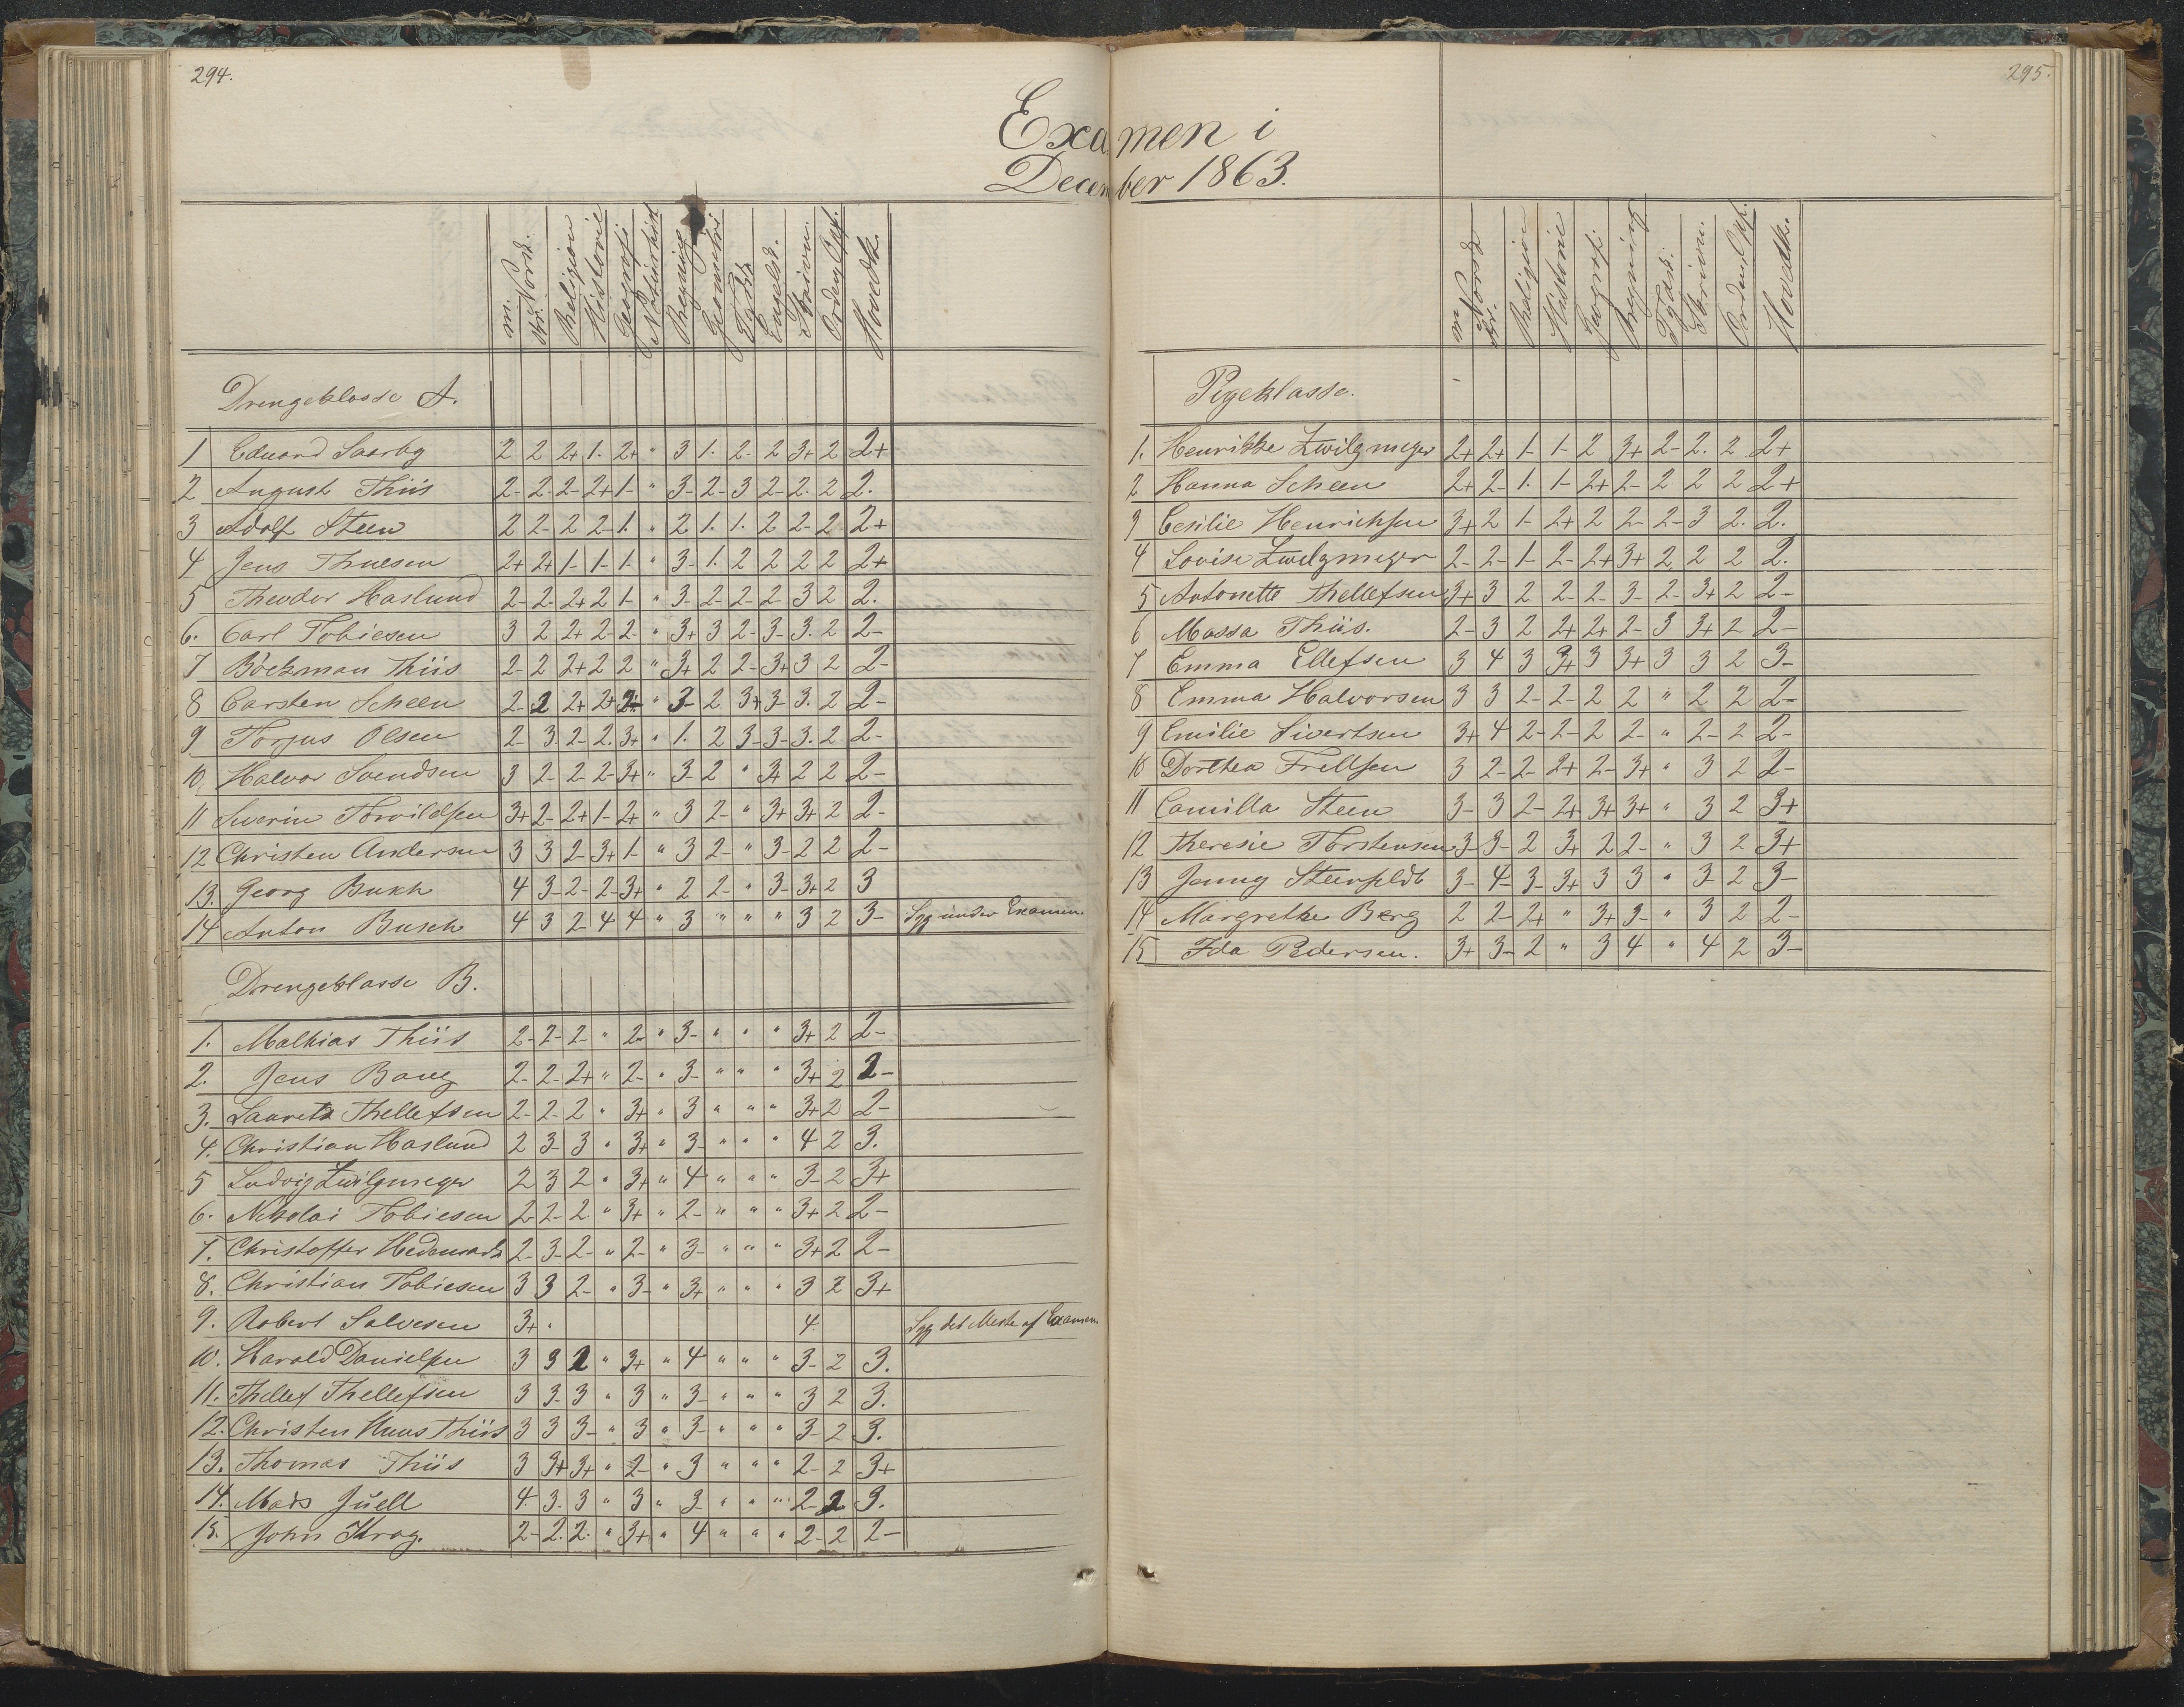 294.
295.
Examen i
December 1863.
m. Norsk. skr. Norsk. Religion Historie Geografi Naturhist Regning Geometri Tydsk Engelsk. Skrivn. Orden, Opf. Hovedk.
Drengeklasse A.
1 Eduard Saarby 2 2 2+ 1. 2+ " 3 1. 2- 2 3+ 2 2+
2 August Thiis 2- 2- 2- 2+ 1- " 3- 2- 3 2- 2. 2 2.
3 Adolf Steen 2 2- 2 2- 1. " 2 1. 1. 2 2- 2 2+
4 Jens Thuesen 2+ 2+ 1- 1- 1- " 3- 1. 2 2 2 2 2+
5 Theodor Haslund 2- 2- 2+ 2 1- " 3- 2- 2- 2- 3 2 2.
6. Carl Tobiesen 3 2 2+ 2- 2- " 3+ 3 2- 3- 3. 2 2-
7 Böckman Thiis 2- 2 2+ 2 2 " 3+ 2 2- 3+ 3 2 2-
8 Carsten Scheen 2- 2 2+ 2+ 2- " 3- 2 3+ 3- 3. 2 2-
9 Torjus Olsen 2- 3 2- 2. 3+ " 1. 2 3- 3- 3. 2 2-
10, Halvor Svendsen 3 2- 2- 2- 3+ " 3- 2 " 3+ 2 2 2-
11 Severin Torvildsen 3+ 2- 2+ 1- 2+ " 3 2- " 3+ 3+ 2 2-
12 Christen Andersen 3 3 2- 3+ 1- " 3 2- " 3- 2 2 2-
13. Georg Bukh 4 3- 2- 2- 3+ " 2 2- " 3- 3+ 2 3
14 Anton Busch 4 3 2- 4 4 " 3 " " " 3 2 3- Syg under Examen
Drengeklasse B.
1. Mathias Thiis 2- 2- 2- " 2- " 3- " " " 3+ 2 2-
2. Jens Bang 2- 2- 2+ " 2- " 3- " " " 3+ 2 2-
3. Lauretz Thellefsen 2- 2- 2 " 3+ " 3 " " " 3+ 2 2-
4. Christian Haslund 2 3- 3 " 3+ " 3- " " " 4 2 3.
5 Ludvig Zwilgmeyer 2 3 2 " 3+ " 4 " " " 3- 2 3+
6. Nikolai Tobiesen 2- 2- 2. " 3+ " 2- " " " 3+ 2 2-
7. Christoffer 2- 3- 2- " 2- " 3- " " " 3+ 2 2-
8. Christian Tobiesen 3 3 2- " 3- " 3+ " " " 3 2 3+
9. Robert Salvesen 3+ " 4. Syg det Meste af Examen
10. Harald Danielsen 3 3 2 " 3+ " 4 " " " 3- 2 3.
11. Thellef Thellefsen 3 3- 3 " 3 " 3- " " " 3 2 3.
12. Christen Huus Thiis 3 3 3- " 3 " 3- " " " 3- 2 3.
13. Thomas Thiis 3 3+ 3+ " 2- " 3 " " " 2- 2 3+
14. Mads Juell 4. 3- 3 " 3 " 3- " " " 2- 2 3.
15. John Krog. 2- 2. 2. " 3+ " 4 " " " 2- 2 2-
m Norsk skr. Religion Historie Geografi Regning Tydsk. Skrivn. Orden, Opf. Hovedk.
Pigeklasse.
1. Henrikke Zwilgmeyer 2+ 2+ 1- 1- 2 3+ 2- 2. 2 2+
2 Hanna Scheen 2+ 2- 1. 1- 2+ 2- 2 2 2 2+
3 Cesilie Henrichsen 3+ 2 1- 2+ 2 2- 2- 3 2. 2.
4 Lovise Zwilgmeyer 2- 2- 1- 2- 2+ 3+ 2 2 2 2.
5 Antonette Thellefsen 3+ 3 2 2- 2- 3- 2- 3+ 2 2-
6 Massa Thiis. 2- 3 2 2+ 2+ 2- 3 3+ 2 2-
7 Emma Ellefsen 3 4 3 3+ 3 3+ 3 3 2 3-
8 Emma Halvorsen 3 3 2- 2- 2 2 " 2 2 2-
9 Emilie Sivertsen 3+ 4 2- 2- 2 2- " 2- 2 2-
10 Dorthea Frellsen 3 2- 2- 2+ 2- 3+ " 3 2 2-
11 Camilla Steen 3- 3 2- 2+ 3+ 3+ " 3 2 3+
12 Theresie Torstensen 3- 3- 2 3+ 2 2- " 3 2 3+
13 Jenny Steenfeldt 3- 4- 3- 3+ 3 3 " 3- 2 3-
14 Margrethe Berg 2 2- 2+ " 3+ 3- " 3 2 2-
15 Ida Pedersen. 3+ 3- 2 " 3 4 " 4 2 3-